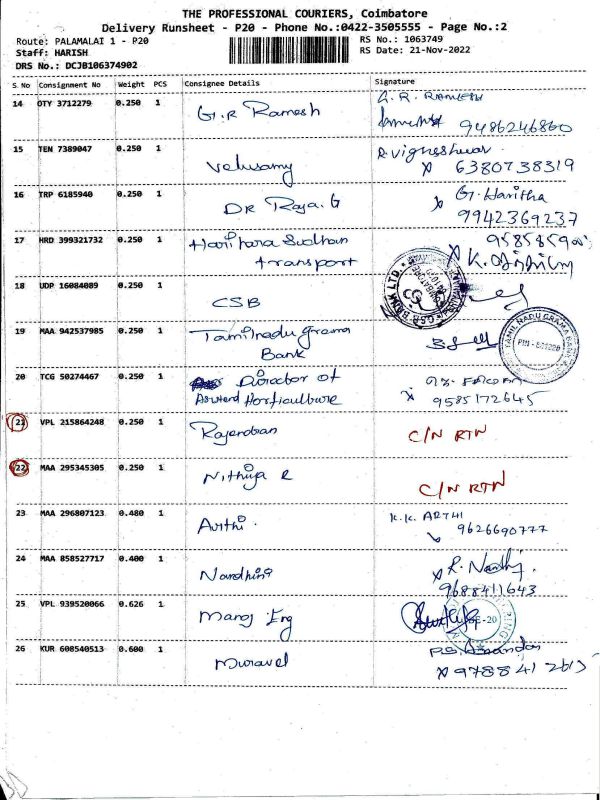 THE PROFESSIONAL COURIERS, Coimbatore
Delivery Runsheet - P20 - Phone No.:0422-3505555 - Page No.:2
Route: PALAMALAI 1 - P20
RS No.: 1063749
Staff: HARISH
RS Date: 21-Nov-2022
DRS No.: DCJB106374902
S No Consignment No Weight PCS Consignee Details Signature
14 OTY 3712279 0.250 1 G.R Ramesh G. R. RAMESH
9486246860
15 TEN 7389047 0.250 1 Velusamy R. Vigneshwar
x 6380738319
16 TRP 6185940 0.250 1 DR Raja.G x G. Haritha
9942369237
17 HRD 399321732 0.250 1 Harihara Sudhan
transport x K.
18 UDP 16084089 0.250 1 CSB
CSB BANK LTD.
19 MAA 942537985 0.250 1 Tamilnadu Grama
Bank
TAMIL NADU GRAMA BANK
20 TCG 50274467 0.250 1 Director of
Horticulture x 9585172645
21 VPL 215864248 0.250 1 Rajendran C/N RTN
22 MAA 295345305 0.250 1 Nithiya R C/N RTN
23 MAA 296807123 0.480 1 Arthi. K.K. ARTHI
9626690777
24 MAA 858527717 0.400 1 Nandhini x R. Nandhj
9688411643
25 VPL 939520066 0.626 1 Manoj Eng
26 KUR 608540513 0.600 1 Muravel